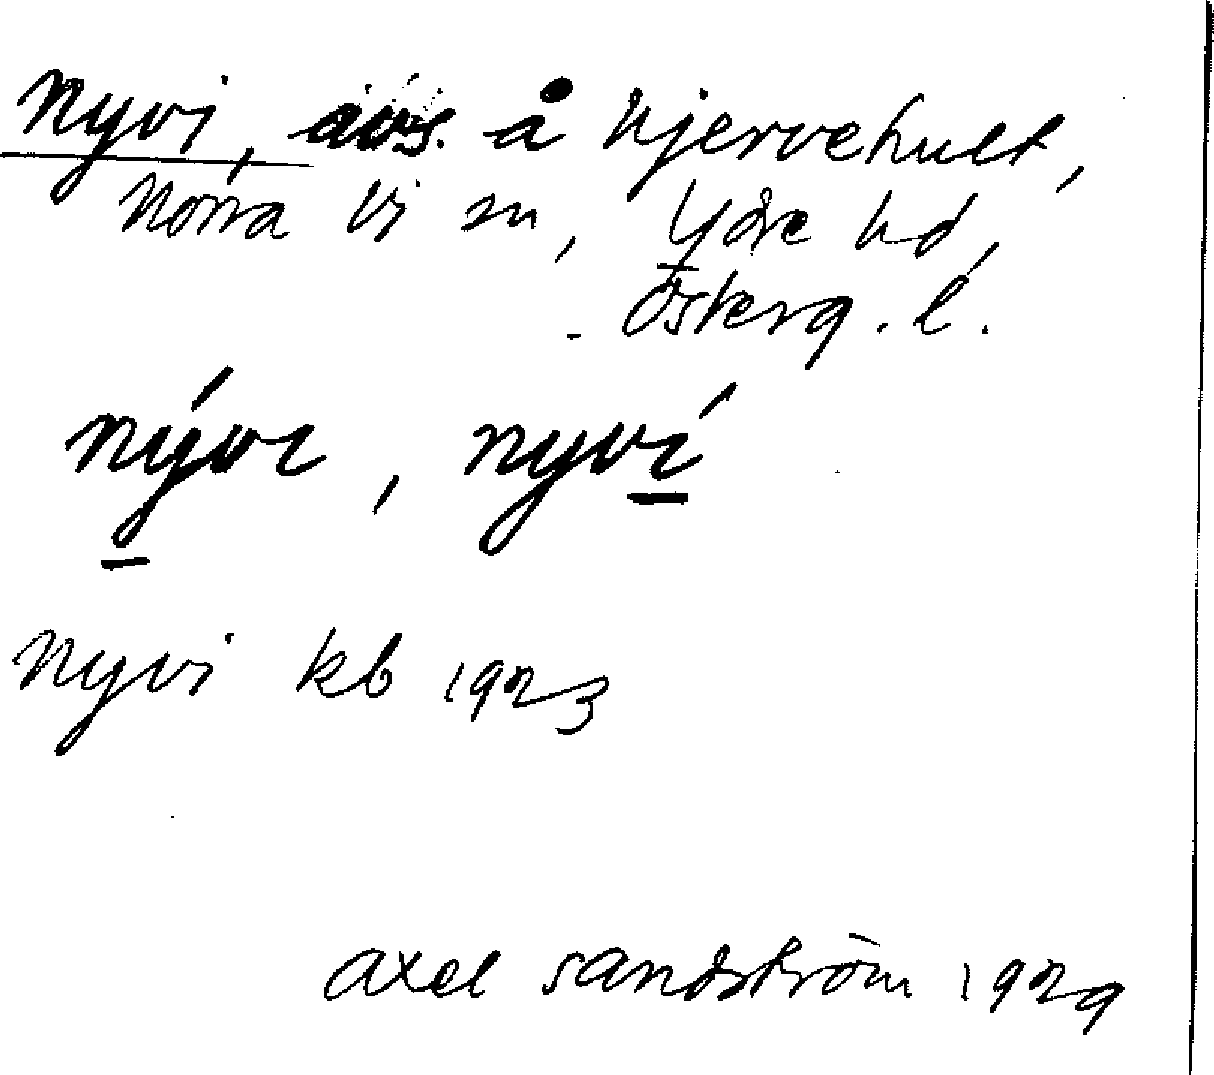 Nyvi, avs. å Kjervehult,
Norra Vi sn, Ydre hd,
Österg. l.
nývi, nyví
Nyvi kb 1923
Axel Sandström 1929